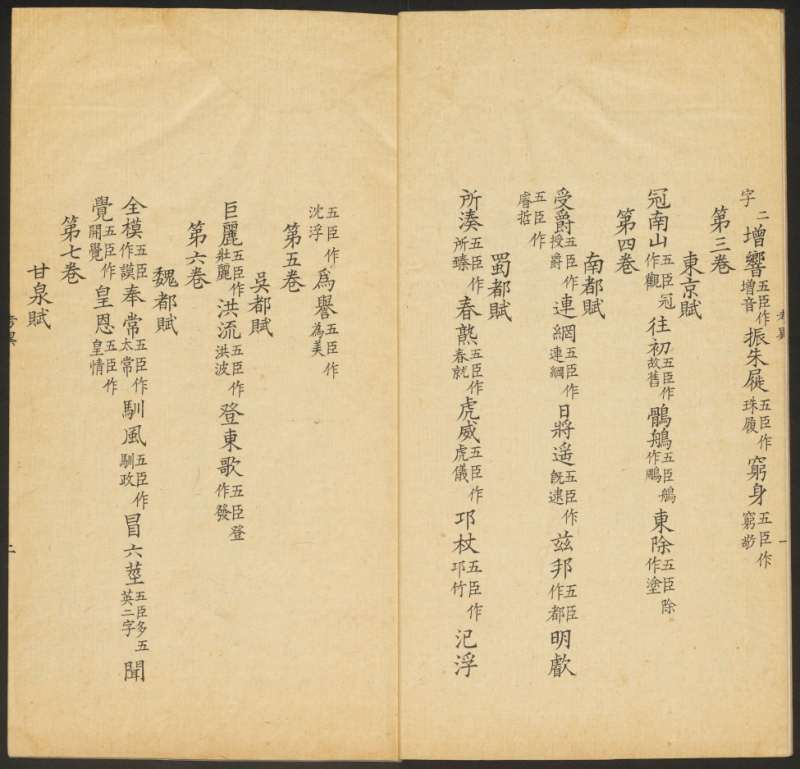 字二增響五臣作增音振朱屣五臣作珠履窮身五臣作窮
第三卷
東京賦
冠南山五臣冠作觀往初五臣作故舊鶻鵃五臣鵃作鵰東除五臣除作塗
第四卷
南都賦
受爵五臣作授爵連網五臣作連綱日將遙五臣作既逮茲邦五臣作都明歔
五臣作睿哲
蜀都賦
所湊五臣作所臻春熟五臣作春就虎威五臣作虎儀邛杖五臣作邛竹汜浮
五臣作沈浮為譽五臣作為美
第五卷
吳都賦
巨麗五臣作壯麗洪流五臣作洪波登東歌五臣登作發
第六卷
魏都賦
全模五臣作謨奉常五臣作太常馴風五臣作馴政冒六莖五臣多五英二字聞
覺五臣作開覺皇恩五臣作皇情
第七卷
甘泉賦
考異
一
二